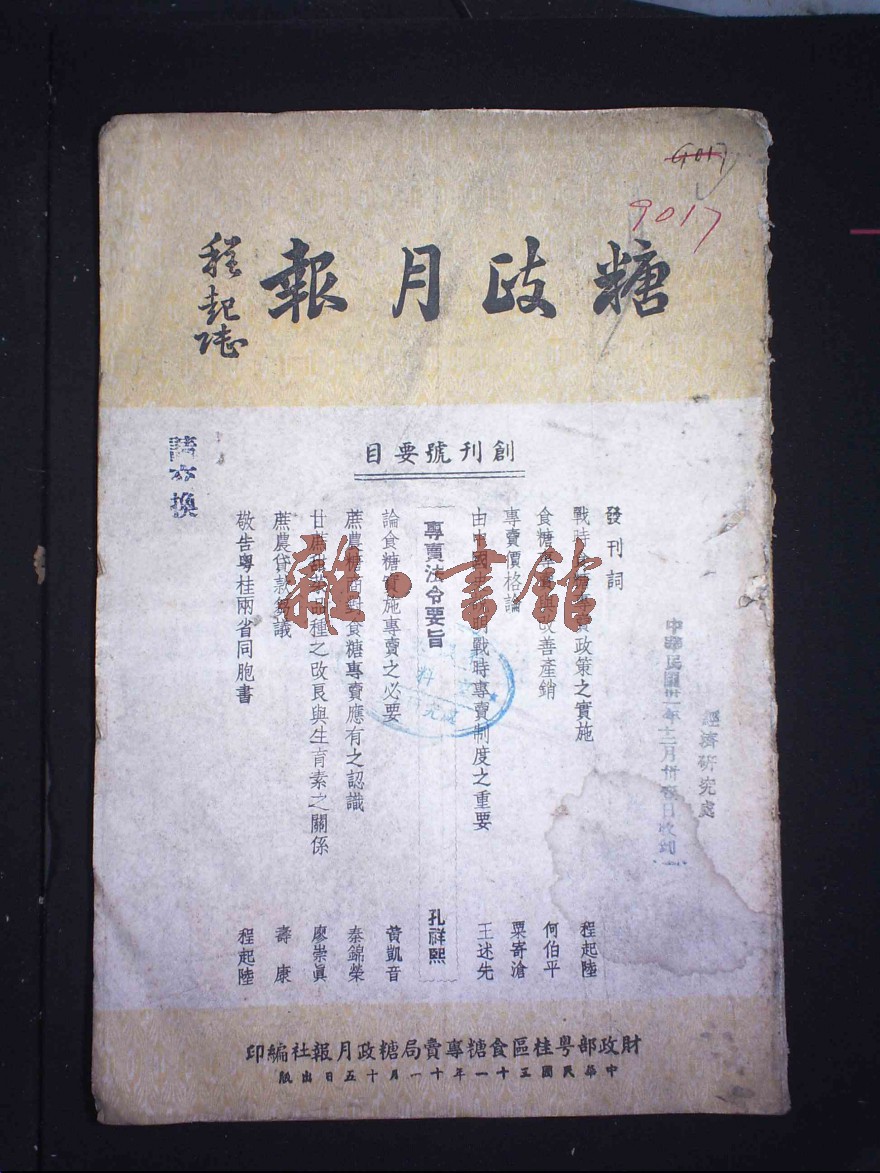 9017
9017
糖政月報
程起陸
創刊號要目
發刊詞
戰時食糖專賣政策之實施 程起陸
食糖 改善產銷 何伯平
專賣價格論 粟寄滄
由中國 戰時專賣制度之重要 王述先
專賣法令要旨 孔祥熙
論食糖實施專賣之必要 黃凱音
蔗農 對食糖專賣應有之認識 秦錦榮
甘蔗 品種之改良與生育素之關係 廖崇眞
蔗農貸款 議 壽康
敬告粵桂兩省同胞書 程起陸
請交換
經濟研究處
中華民國卅一年十二月 日收到
雜·書館
財政部粵桂區食糖專賣局糖政月報社編印
中華民國三十一年十一月十五日出版